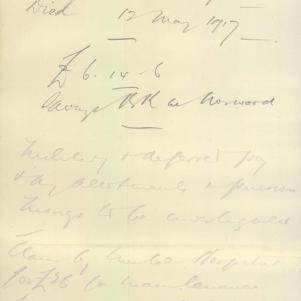 Died 12 May 1917.
£6-14-6
Savings Bk at Norwood
Military & deferred pay
& any allotments or pension
Moneys to be investigated
Claim by Hospital
for £36 for maintenance